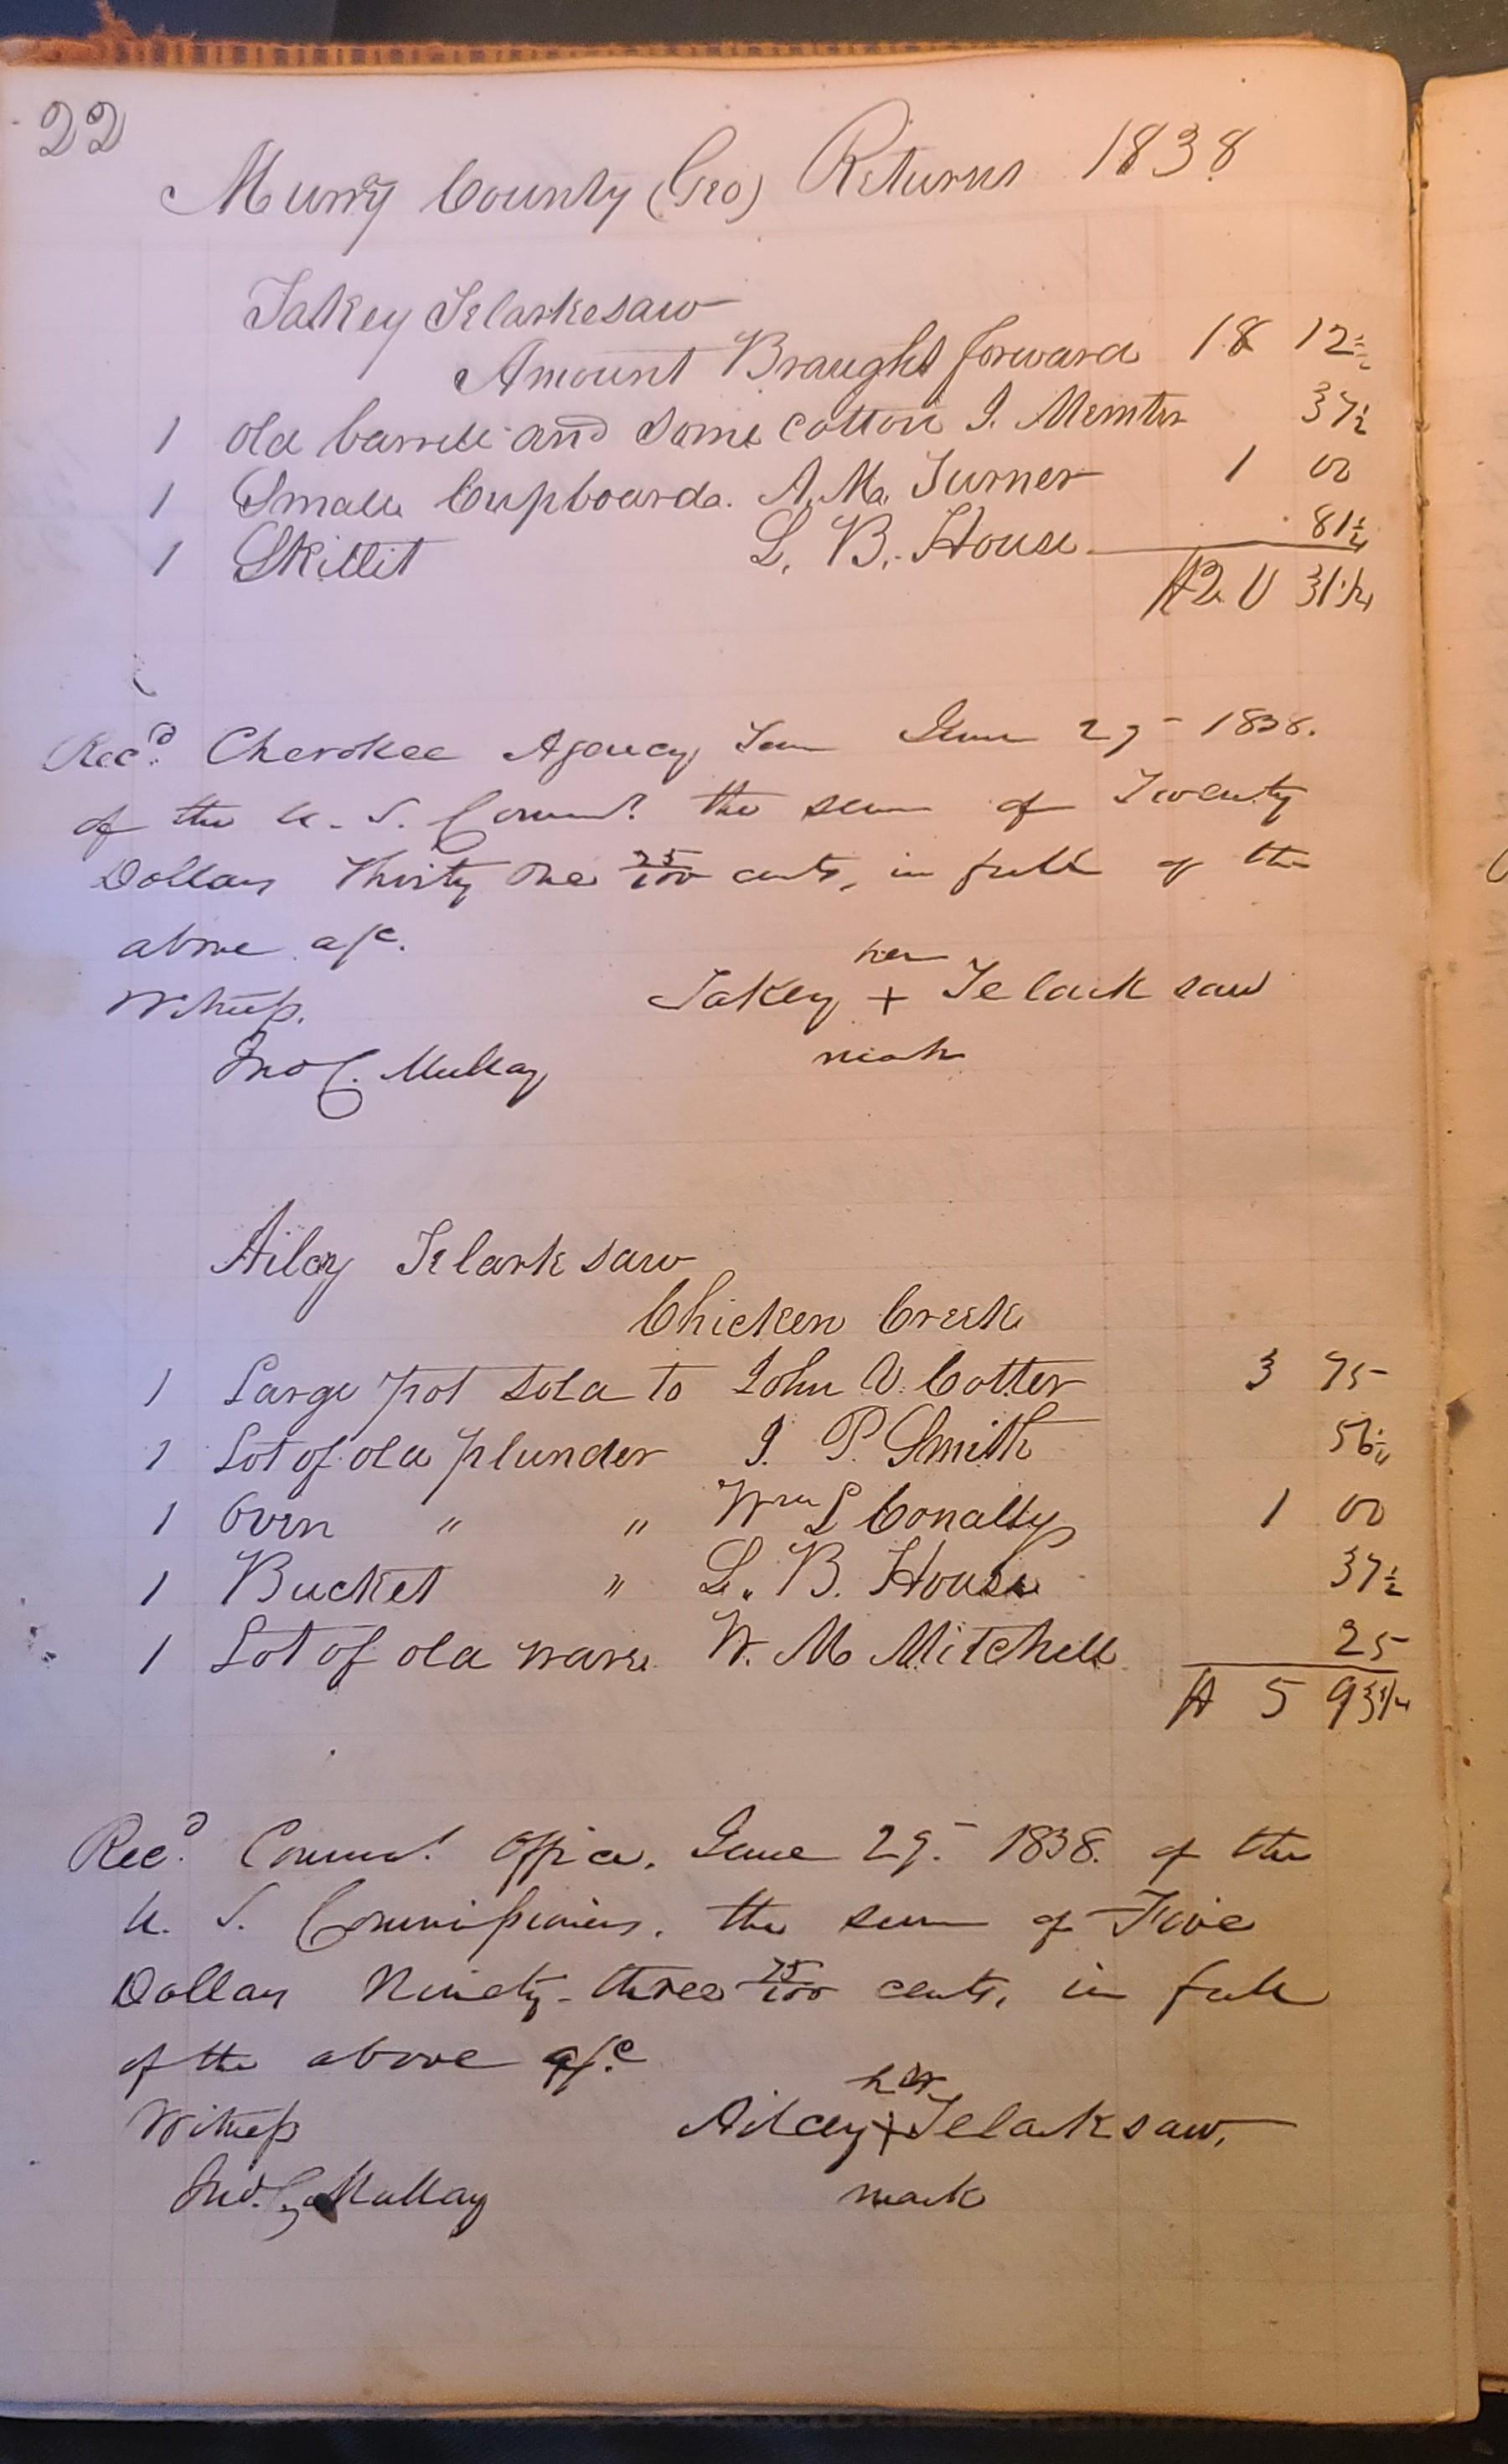 22
Murry County (Geo) Returns 1838
Takey Telarkesaw
Amount Braught forward 18 12½
1 old barrell and some cotton I. Memter 37½
1 Small Cupboard. A. Mc. Turner 1 00
1 Skillit L. B. House 81¼
$20 31¼
Recd. Cherokee Agency Ten June 29 1838.
of the U. S. Comms. the sum of Twenty
Dollars Thirty One 25/100 cents, in full of the
above a/c.
her
Witness. Takey + Telarksaw
Jno C. Mullay mark
Ailcy Telark saw
Chicken Creek
1 Large pot sold to John V. Cotter 3 75
1 Lot of old plunder I. P. Smith 56¼
1 Oven " " Wm L Conally 1 00
1 Bucket " L. B. House 37½
1 Lot of old ware W. M Mitchell 25
$ 5 93¾
Recd. Comms. Office, June 29. 1838. of the
U. S. Commissioners. the sum of Five
Dollars Ninety-three 75/100 cents, in full
of the above a/c
her
Witness Ailcey + Telarksaw.
Jno. C. Mullay mark